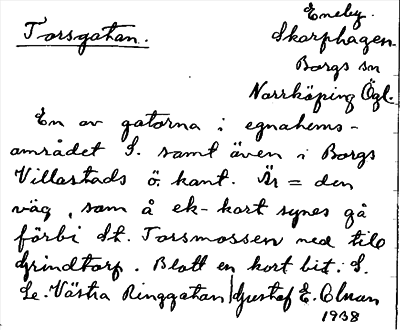 Eneby.
Torsgatan.
Skarphagen.
Borgs sn
Norrköping Ögl.
En av gatorna i egnahems-
området S. samt även i Borgs
Villastads ö. kant. Är = den
väg, som å ek-kart synes gå
förbi St. Torsmossen ned till
Grindtorp. Blott en kort bit. S.
Se. Västra Ringgatan / Gustaf E. Olsson
1938